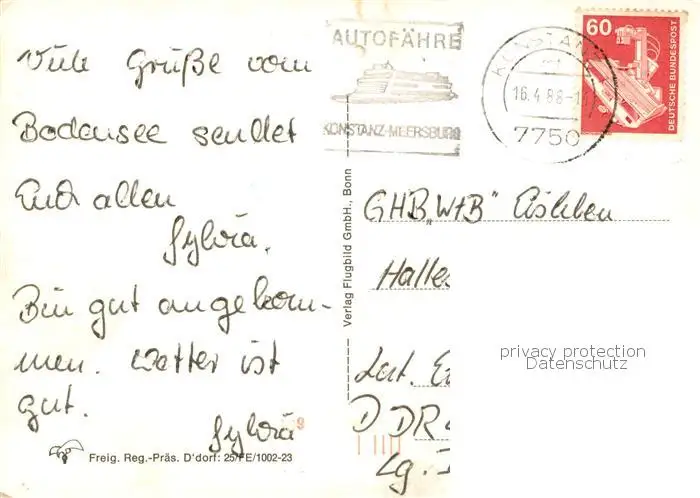 Viele Grüße vom
Bodensee sendet
Euch allen
Sylvia.
Bin gut angekom-
men. Wetter ist
gut.
Sylvia
Freig. Reg.-Präs. D'dorf: 25/FE/1002-23
Verlag Flugbild GmbH., Bonn
AUTOFÄHRE
KONSTANZ-MEERSBURG
KONSTANZ
16.4.88-
7750
60
DEUTSCHE BUNDESPOST
GHB „W+B"
Halle
DDR
privacy protection
Datenschutz